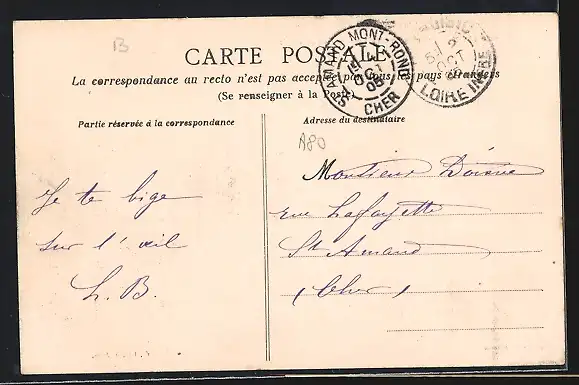 B
CARTE POSTALE
La correspondance au recto n'est pas acceptée par tous les pays étrangers
(Se renseigner à la Poste)
ST AMAND MONT-ROND
CHER
OCT
LOIRE INFRE
Partie réservée à la correspondance
Adresse du destinataire
A80
Je te bige
sur l'œil
L. B.
Monsieur
rue Lafayette
St Amand
(Cher)